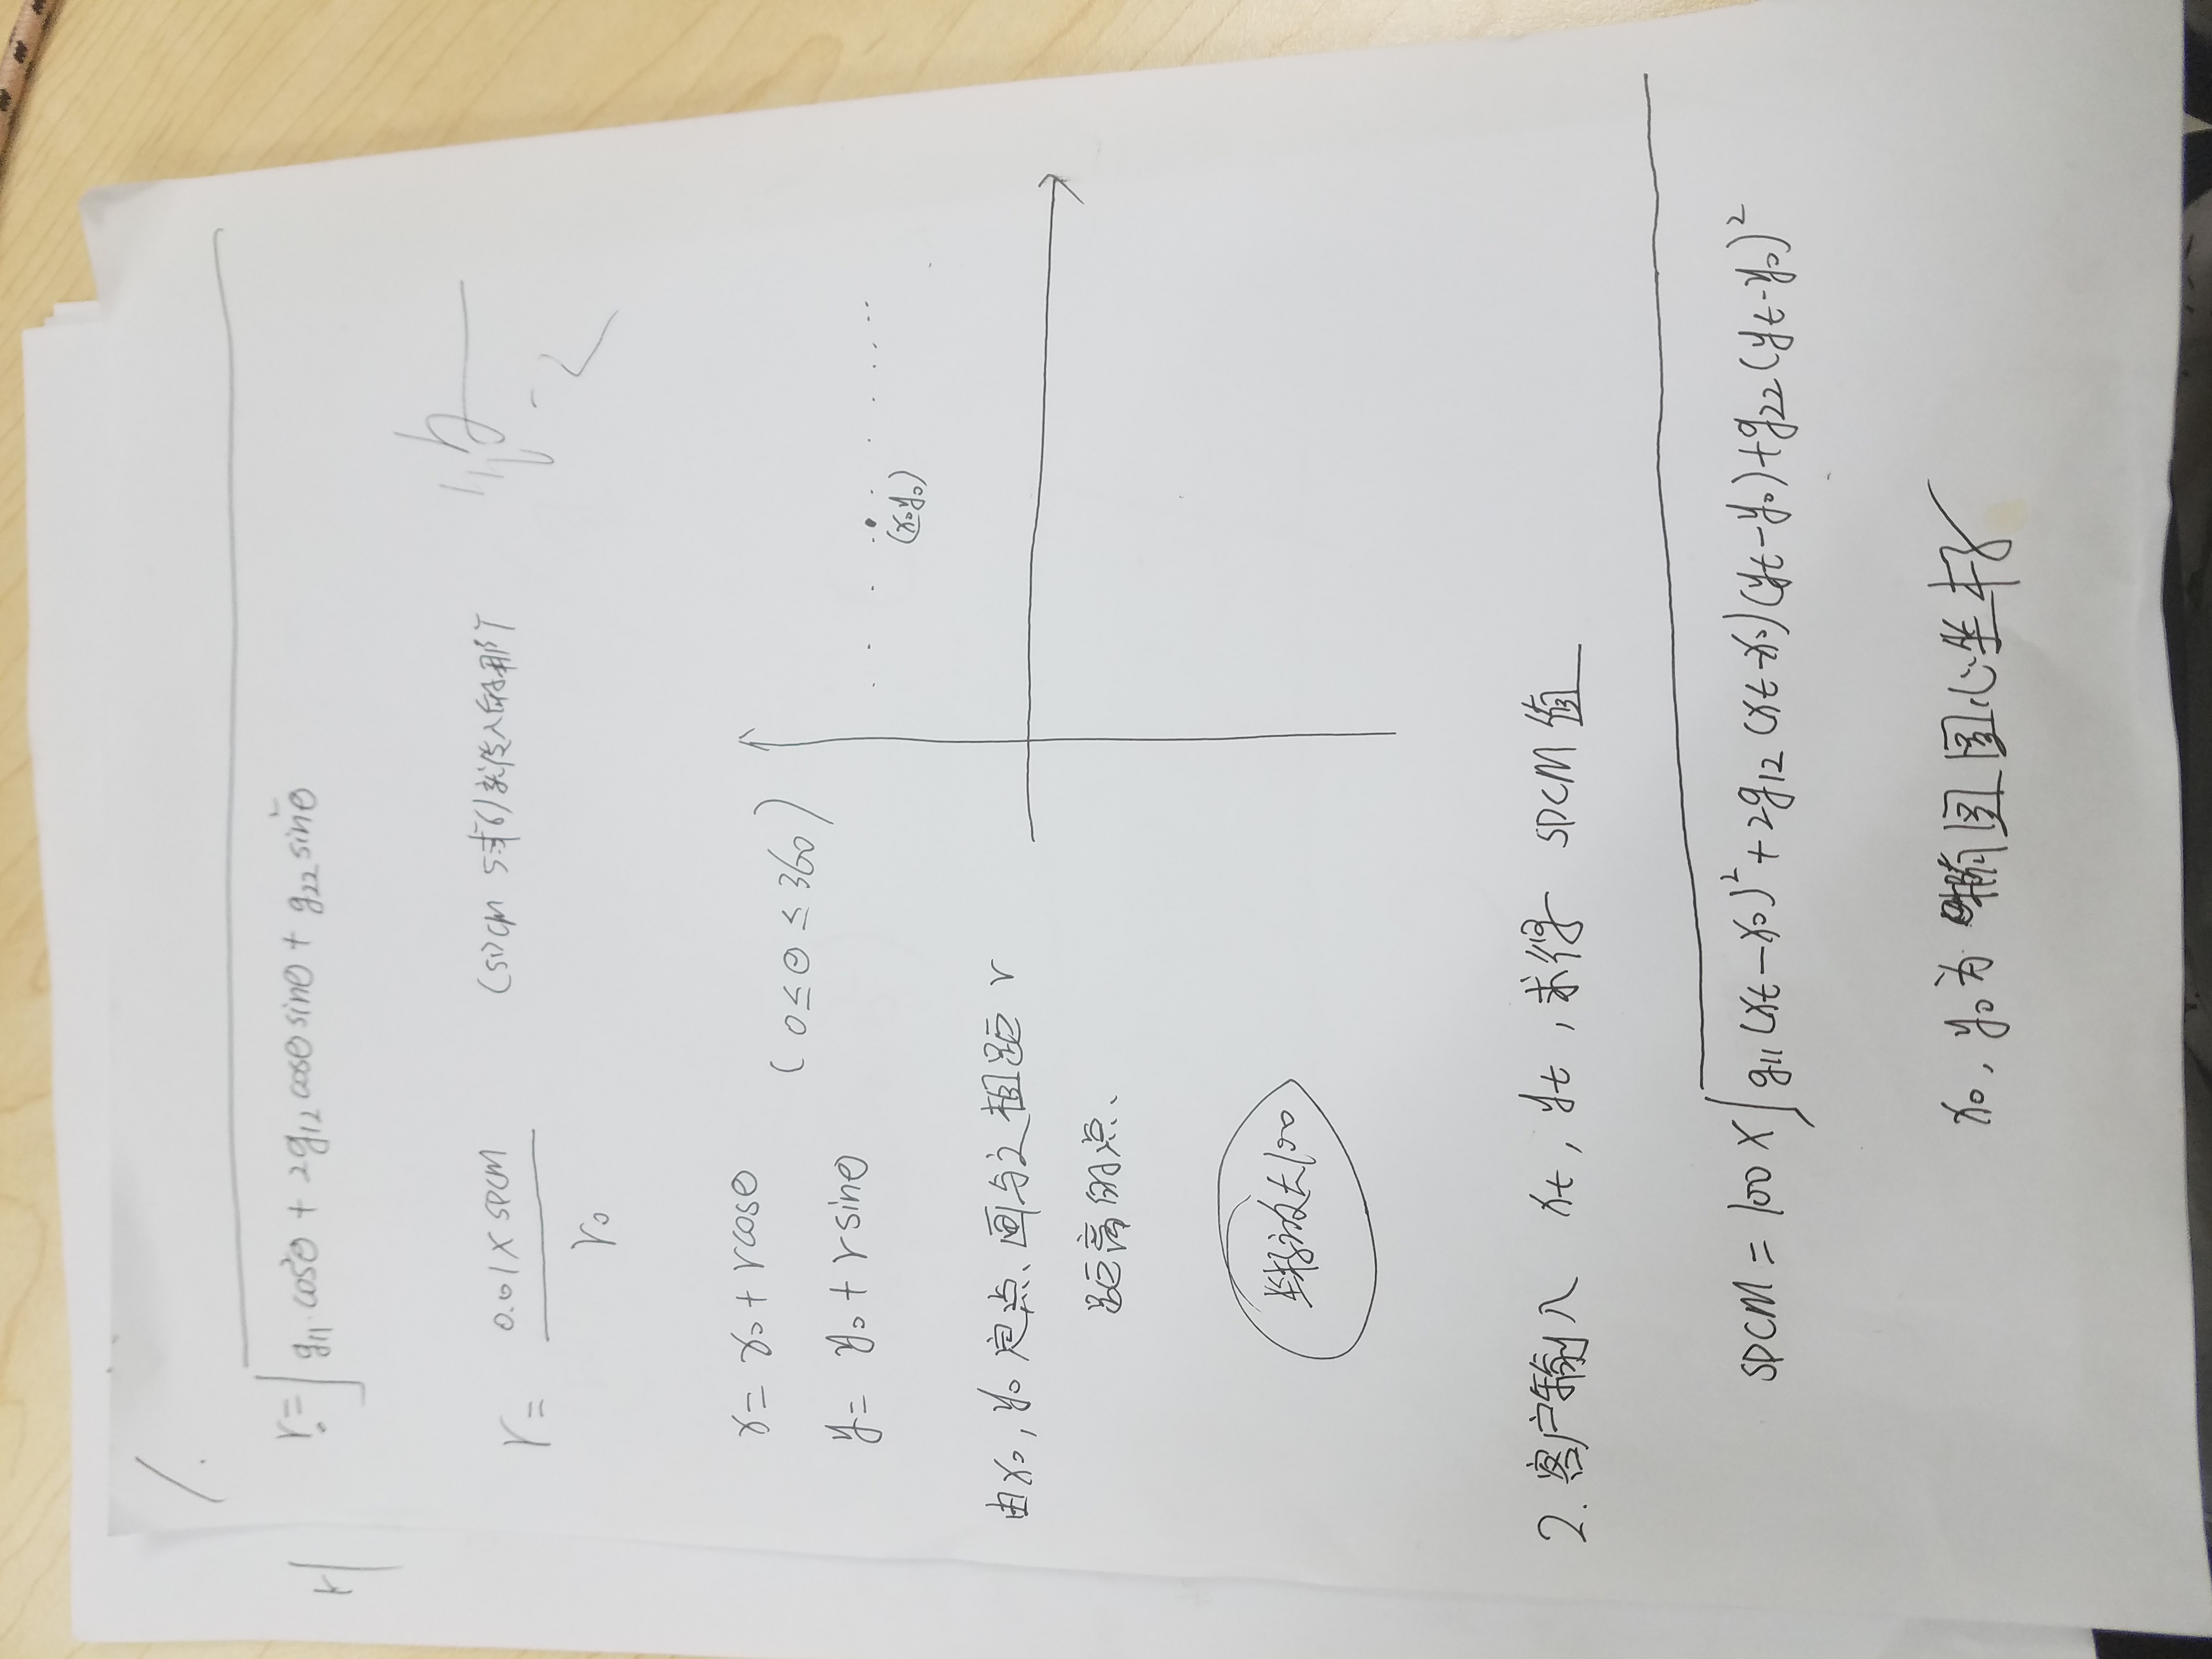 1.
r₀=√(g₁₁ cos²θ + 2g₁₂ cosθ sinθ + g₂₂ sin²θ)
r= 0.01×SDCM / r₀ (SDCM 5或6)就传入的那个
x= x₀ + rcosθ
(0≤θ≤360)
y= y₀ + rsinθ
(x₀y₀)
由x₀, y₀ 定点、画与之相距 r
距离的点、
坐标放大100
2. 客户输入 xt, yt, 求得 SDCM 值
SDCM = 100 × √(g₁₁(xt-x₀)²+2g₁₂(xt-x₀)(yt-y₀)+g₂₂(yt-y₀)²)
x₀, y₀为 椭圆圆心坐标